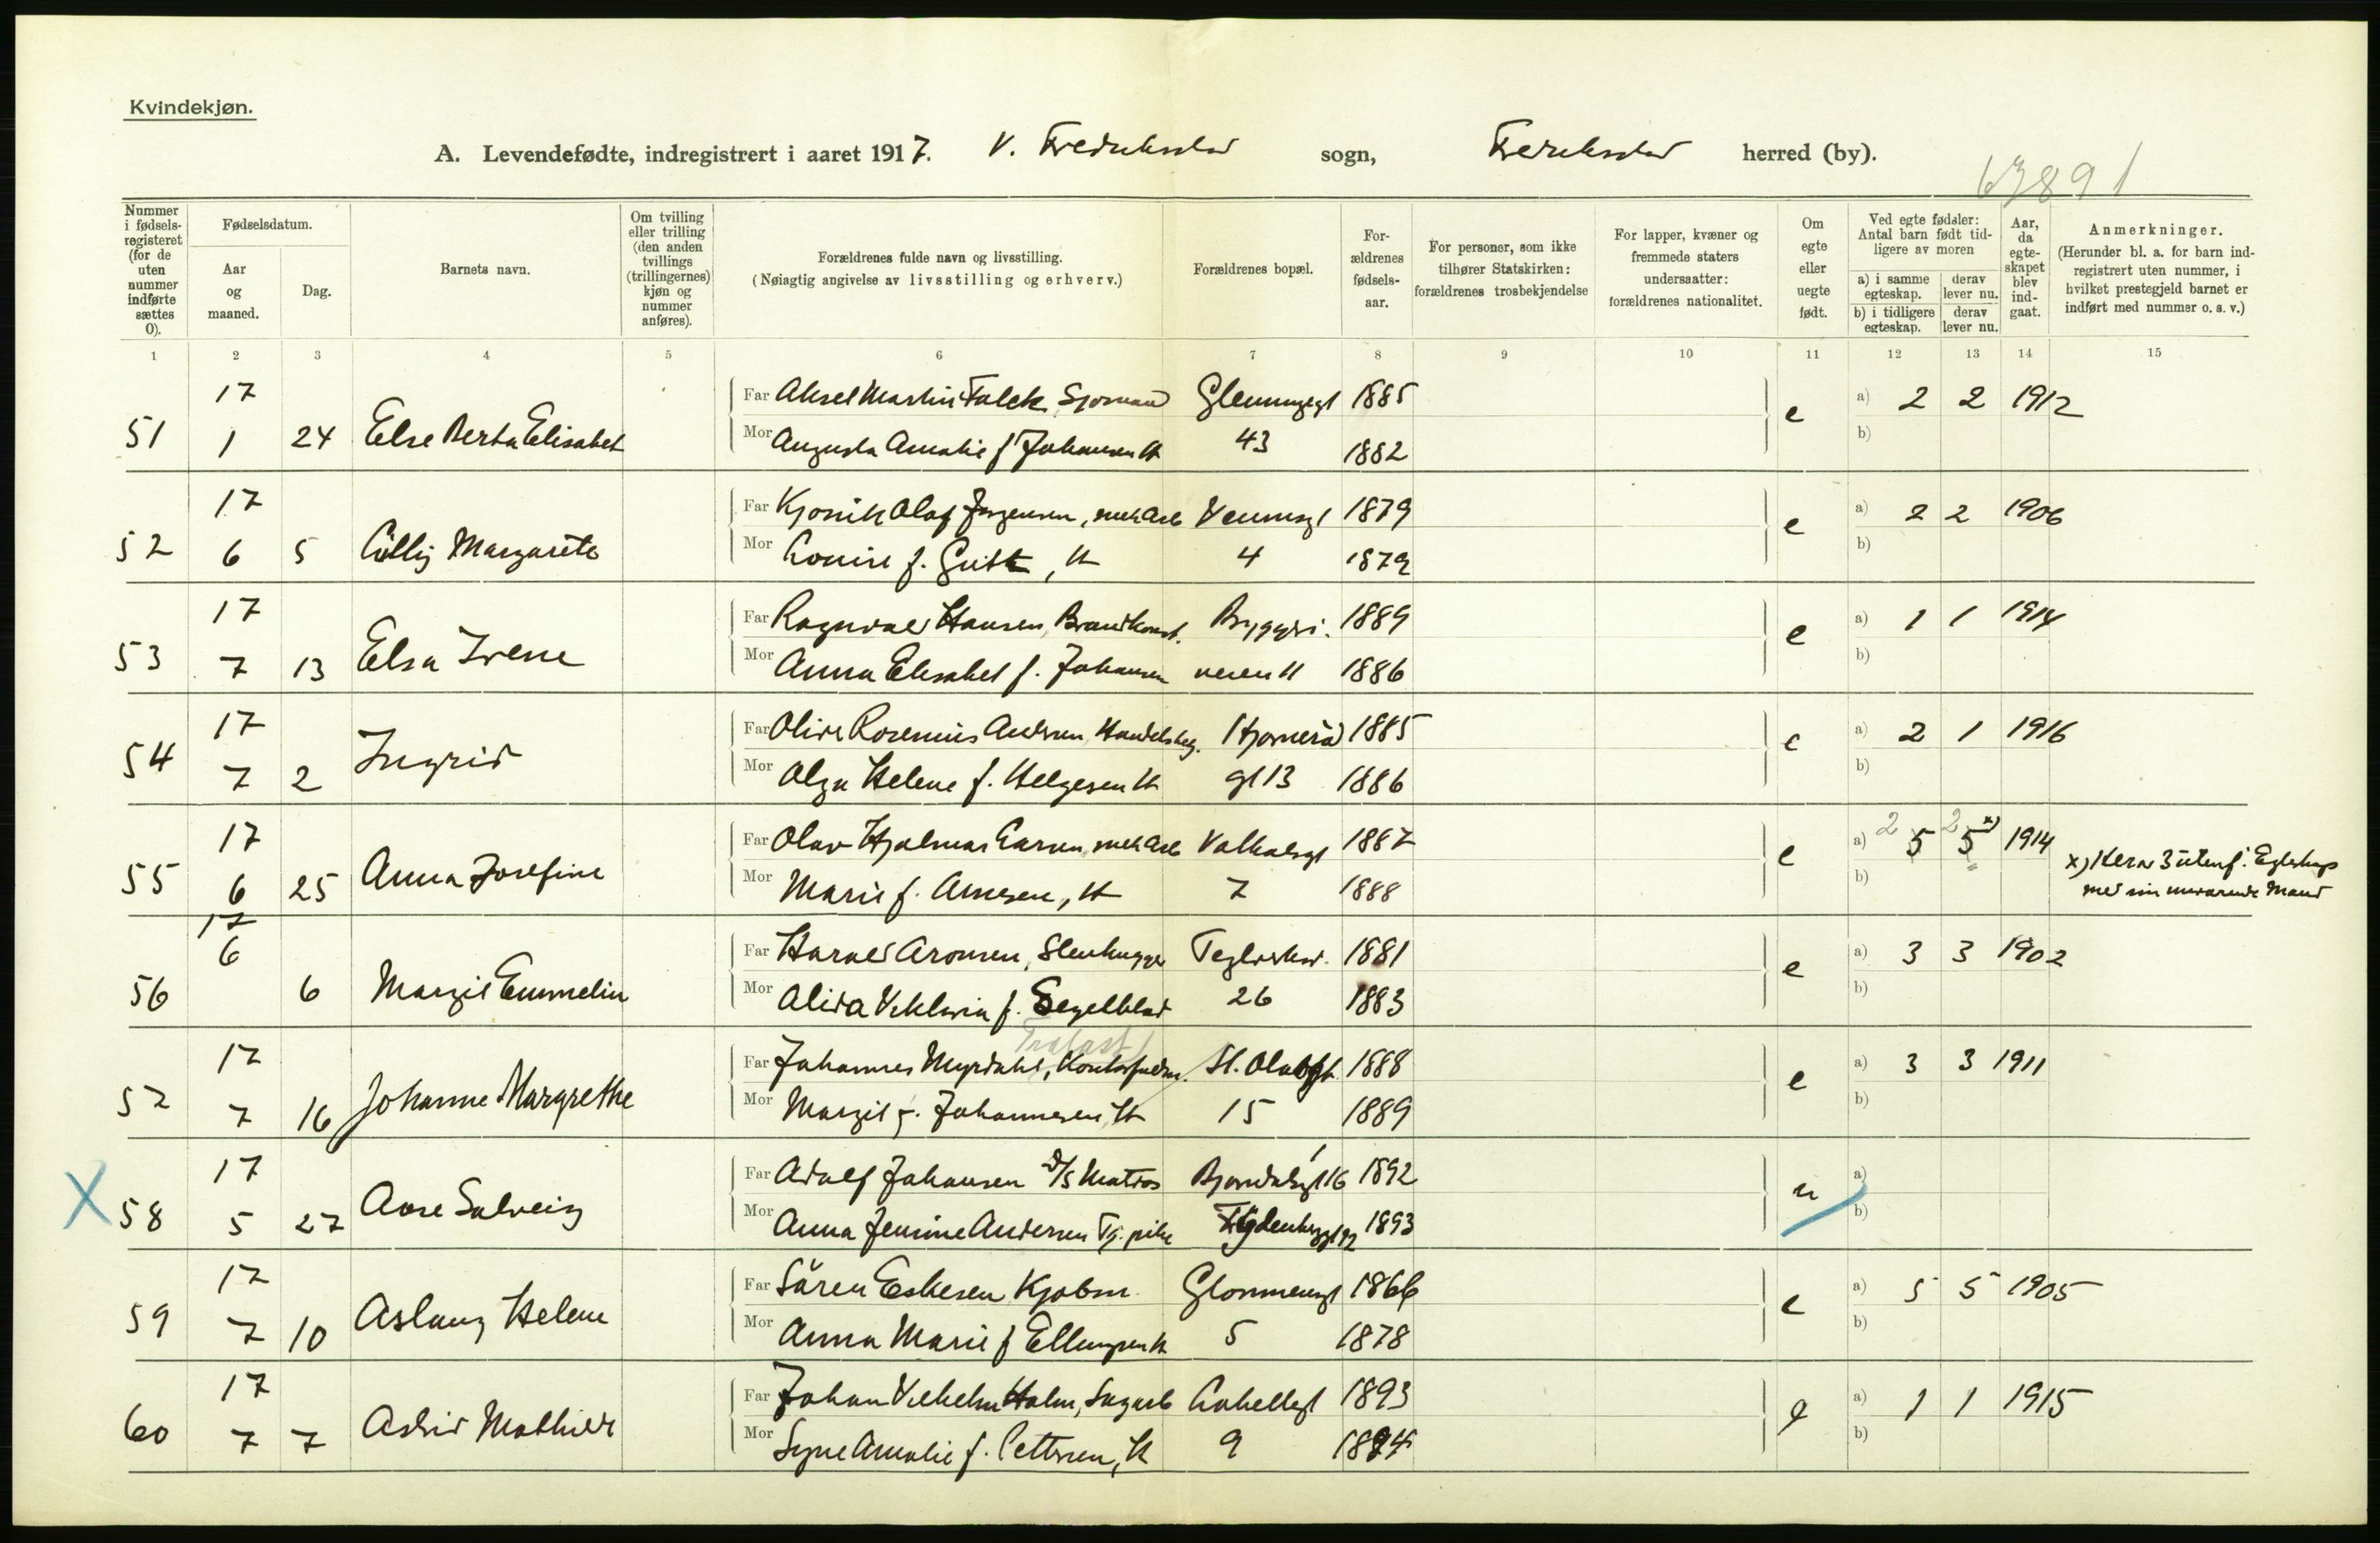 Kvindekjøn.
A. Levendefødte, indregistrert i aaret 1917. V. Fredrikstad sogn, Fredrikstad herred (by).
63891
Nummer i fødsels-registeret (for de uten nummer indførte sættes 0).
Fødselsdatum.
Aar og maaned.
Dag.
Barnets navn.
Om tvilling eller trilling (den anden tvillings (trillingernes) kjøn og nummer anføres).
Forældrenes fulde navn og livsstilling.
(Nøiagtig angivelse av livsstilling og erhverv.)
Forældrenes bopæl.
For-ældrenes fødsels-aar.
For personer, som ikke tilhører Statskirken: forældrenes trosbekjendelse
For lapper, kvæner og fremmede staters undersaatter: forældrenes nationalitet.
Om egte eller uegte født.
Ved egte fødsler: Antal barn født tid-ligere av moren
a) i samme egteskap.
derav lever nu.
b) i tidligere egteskap.
derav lever nu.
Aar, da egte-skapet blev ind-gaat.
Anmerkninger.
(Herunder bl. a. for barn ind-registrert uten nummer, i hvilket prestegjeld barnet er indført med nummer o. s. v.)
1 2 3 4 5 6 7 8 9 10 11 12 13 14 15
17 Far Aksel Martin Falck Sjømand 1885 a) 2 2 1912
51 1 24 Else Berta Elisabet e
Mor Augusta Amalie f Johansen H 43 1882 b)
17 Far Olaf Jørgensen, mek Arb 1879 a) 2 2 1906
52 6 5 Margarete e
Mor Louise f. H 4 1879 b)
17 Far Ragnvald Hansen 1889 a) 1 1 1914
53 7 13 Elsa Irene e
Mor Anna Elisabet f. Johansen 11 1886 b)
17 Far Rosenius Andersen Handelsbeg. 1885 a) 2 1 1916
54 7 2 Ingrid e
Mor Olga Helene f. Helgesen H gt 13 1886 b)
17 Far Olav Hjalmar Larsen mek Arb Valhalsgt 1887 a) 2 5 2 5 x) 1914
55 6 25 Anna Josefine e
Mor Marie f. Arnesen, H 7 1888 b)
x) Herav 3 før Egteskap
med sin nuværende Mand
17 Far Harald Aronsen, Stenhugger 1881 a) 3 3 1902
6
56 6 Margit Emmelin e
Mor Alida f. Segelblad 26 1883 b)
Trælast
17 Far Johannes Myrdahl, St. Olafsgt 1888 a) 3 3 1911
57 7 16 Johanne Margrethe e
Mor Margit f. Johannesen H 15 1889 b)
17 Far Adolf Johansen D/S Matros 16 1892 a)
X 58 5 27 Aase Solveig u
Mor Anna Jensine Andersen Tj. pike 1893 b)
17 Far Sören Eskesen Kjøbm. Glommengt 1866 a) 5 5 1905
59 7 10 Aslaug Helene e
Mor Anna Marie f Ellingsen H 5 1878 b)
17 Far Johan Vilhelm Holm, Sagarb 1893 a) 1 1 1915
60 7 7 Astrid Mathilde e
Mor Signe Amalie f. Pettersen, H 9 1894 b)